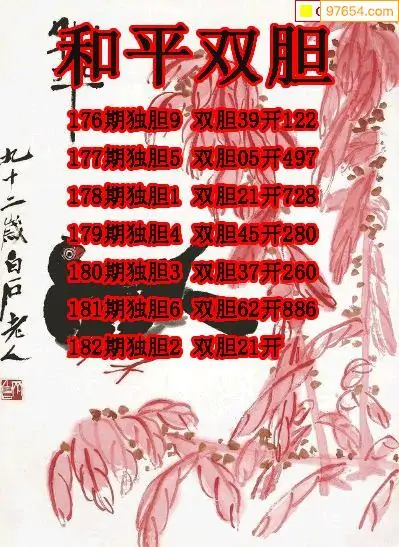 97654.com
和平双胆
176期独胆9 双胆39开122
177期独胆5 双胆05开497
178期独胆1 双胆21开728
179期独胆4 双胆45开280
180期独胆3 双胆37开260
181期独胆6 双胆62开886
182期独胆2 双胆21开
九十二岁白石老人